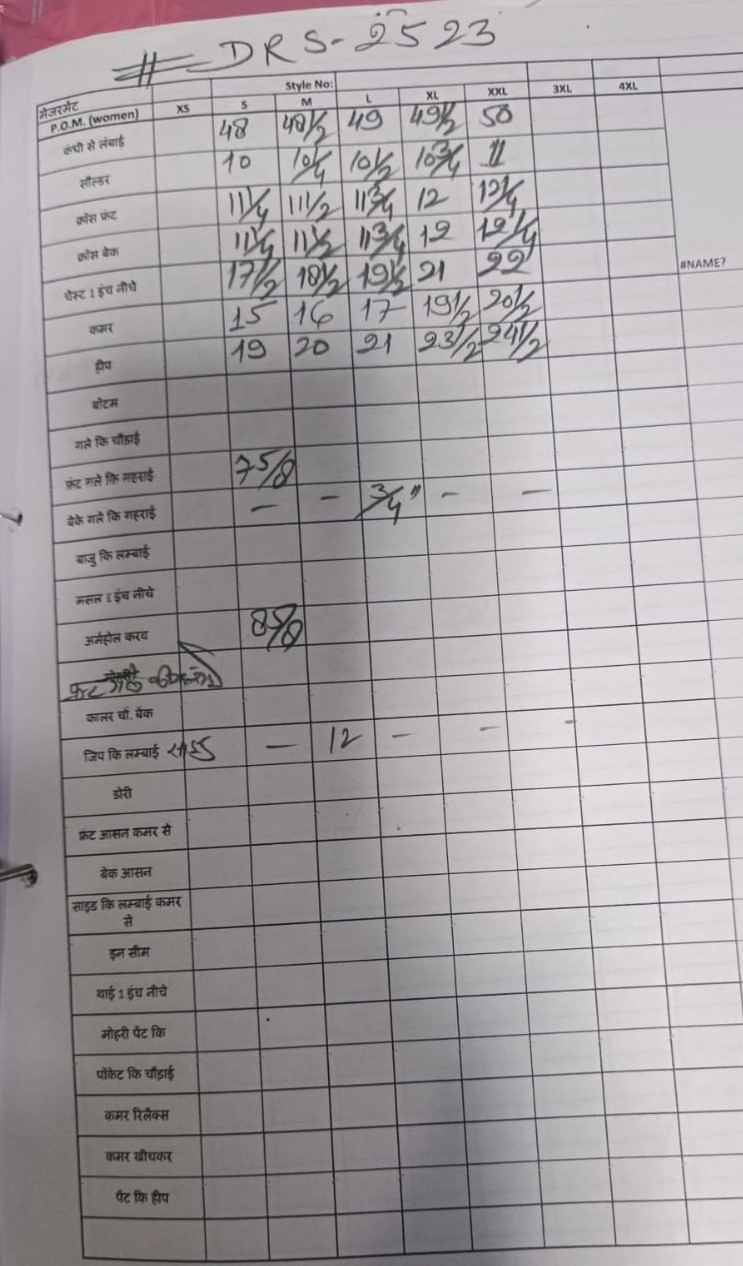 # DRS-2523
मेजरमेंट Style No:
P.O.M. (women) XS S M L XL XXL 3XL 4XL
कंधी से लंबाई 48 48 1/2 49 49 1/2 50
सौल्डर 10 10 1/4 10 1/2 10 3/4 11
क्रॉस फ्रंट 11 1/4 11 1/2 11 3/4 12 12 1/4
क्रॉस बेक 11 1/4 11 1/2 11 3/4 12 12 1/4
चेस्ट 1 इंच नीचे 17 1/2 18 1/2 19 1/2 21 22 #NAME?
कमर 15 16 17 19 1/2 20 1/2
हीप 19 20 21 23 1/2 24 1/2
बोटम
गले कि चौड़ाई
फ्रंट गले कि गहराई 7 5/8
बेके गले कि गहराई - - 3/4" - -
बाजु कि लम्बाई
मसल 1 इंच नीचे
अर्महोल करव 8 5/8
कालर चौ. बेक
जिप कि लम्बाई साइड - 12 - - -
डोरी
फ्रंट आसन कमर से
बेक आसन
साइड कि लम्बाई कमर
से
इन सीम
थाई 1 इंच नीचे
मोहरी पेंट कि
पॉकेट कि चौड़ाई
कमर रिलैक्स
कमर खीचकर
पेंट कि हीप